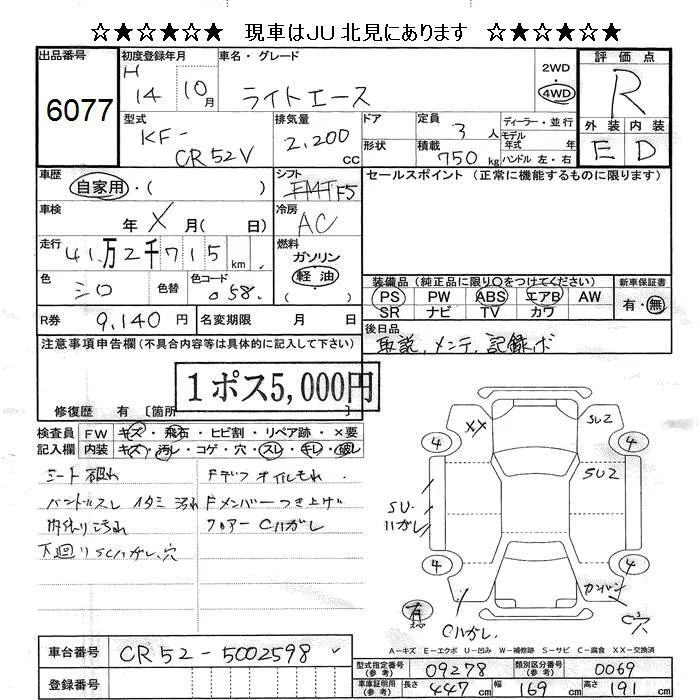 ☆★☆★☆★ 現車はJU北見にあります ☆★☆★☆★
出品番号 6077
初度登録年月 H 14 年 10 月
車名・グレード ライトエース
2WD
4WD
評価点 R
外装 内装
E D
型式 KF-CR52V
排気量 2,200 cc
ドア
形状
定員 3人
積載 750 kg
ディーラー・並行
モデル年式 年式
ハンドル 左・右
車歴 自家用・( )
シフト FMT F5
セールスポイント (正常に機能するものに限ります)
車検 年 X 月( 日)
冷房 AC
走行 41万2千715 km
燃料 ガソリン
軽油
色 シロ 色替
色コード 058
装備品 (純正品に限り○をつけてください)
PS PW ABS エアB AW
SR ナビ TV カワ
新車保証書
有・無
R券 9,140 円
名変期限 月 日
後日品
取説、メンテ、記録ボ
注意事項申告欄(不具合内容等は具体的に記入して下さい)
1ポス5,000円
修復歴 有 [箇所
検査員記入欄
FW キズ・飛石・ヒビ割・リペア跡・×要
内装 キズ・汚レ・コゲ・穴・スレ・キレ・破レ
シート破れ
Fデフオイルもれ
ハンドルスレ イタミ 汚れ
Fメンバーつき上げ
内張り汚れ
フロアーCハガレ
下廻りSCハガレ、穴
XX
SU2
4
4
SU2
SU・ハガレ
4
4
カンバン
有
スペ
Cハガレ
C穴
A-キズ E-エクボ U-凹み W-補修跡 S-サビ C-腐食 XX-交換済
車台番号 CR52-5002598
登録番号
型式指定番号(参考) 09278
類別区分番号(参考) 0069
車庫証明用(参考) 長さ 447 cm 幅 169 cm 高さ 191 cm